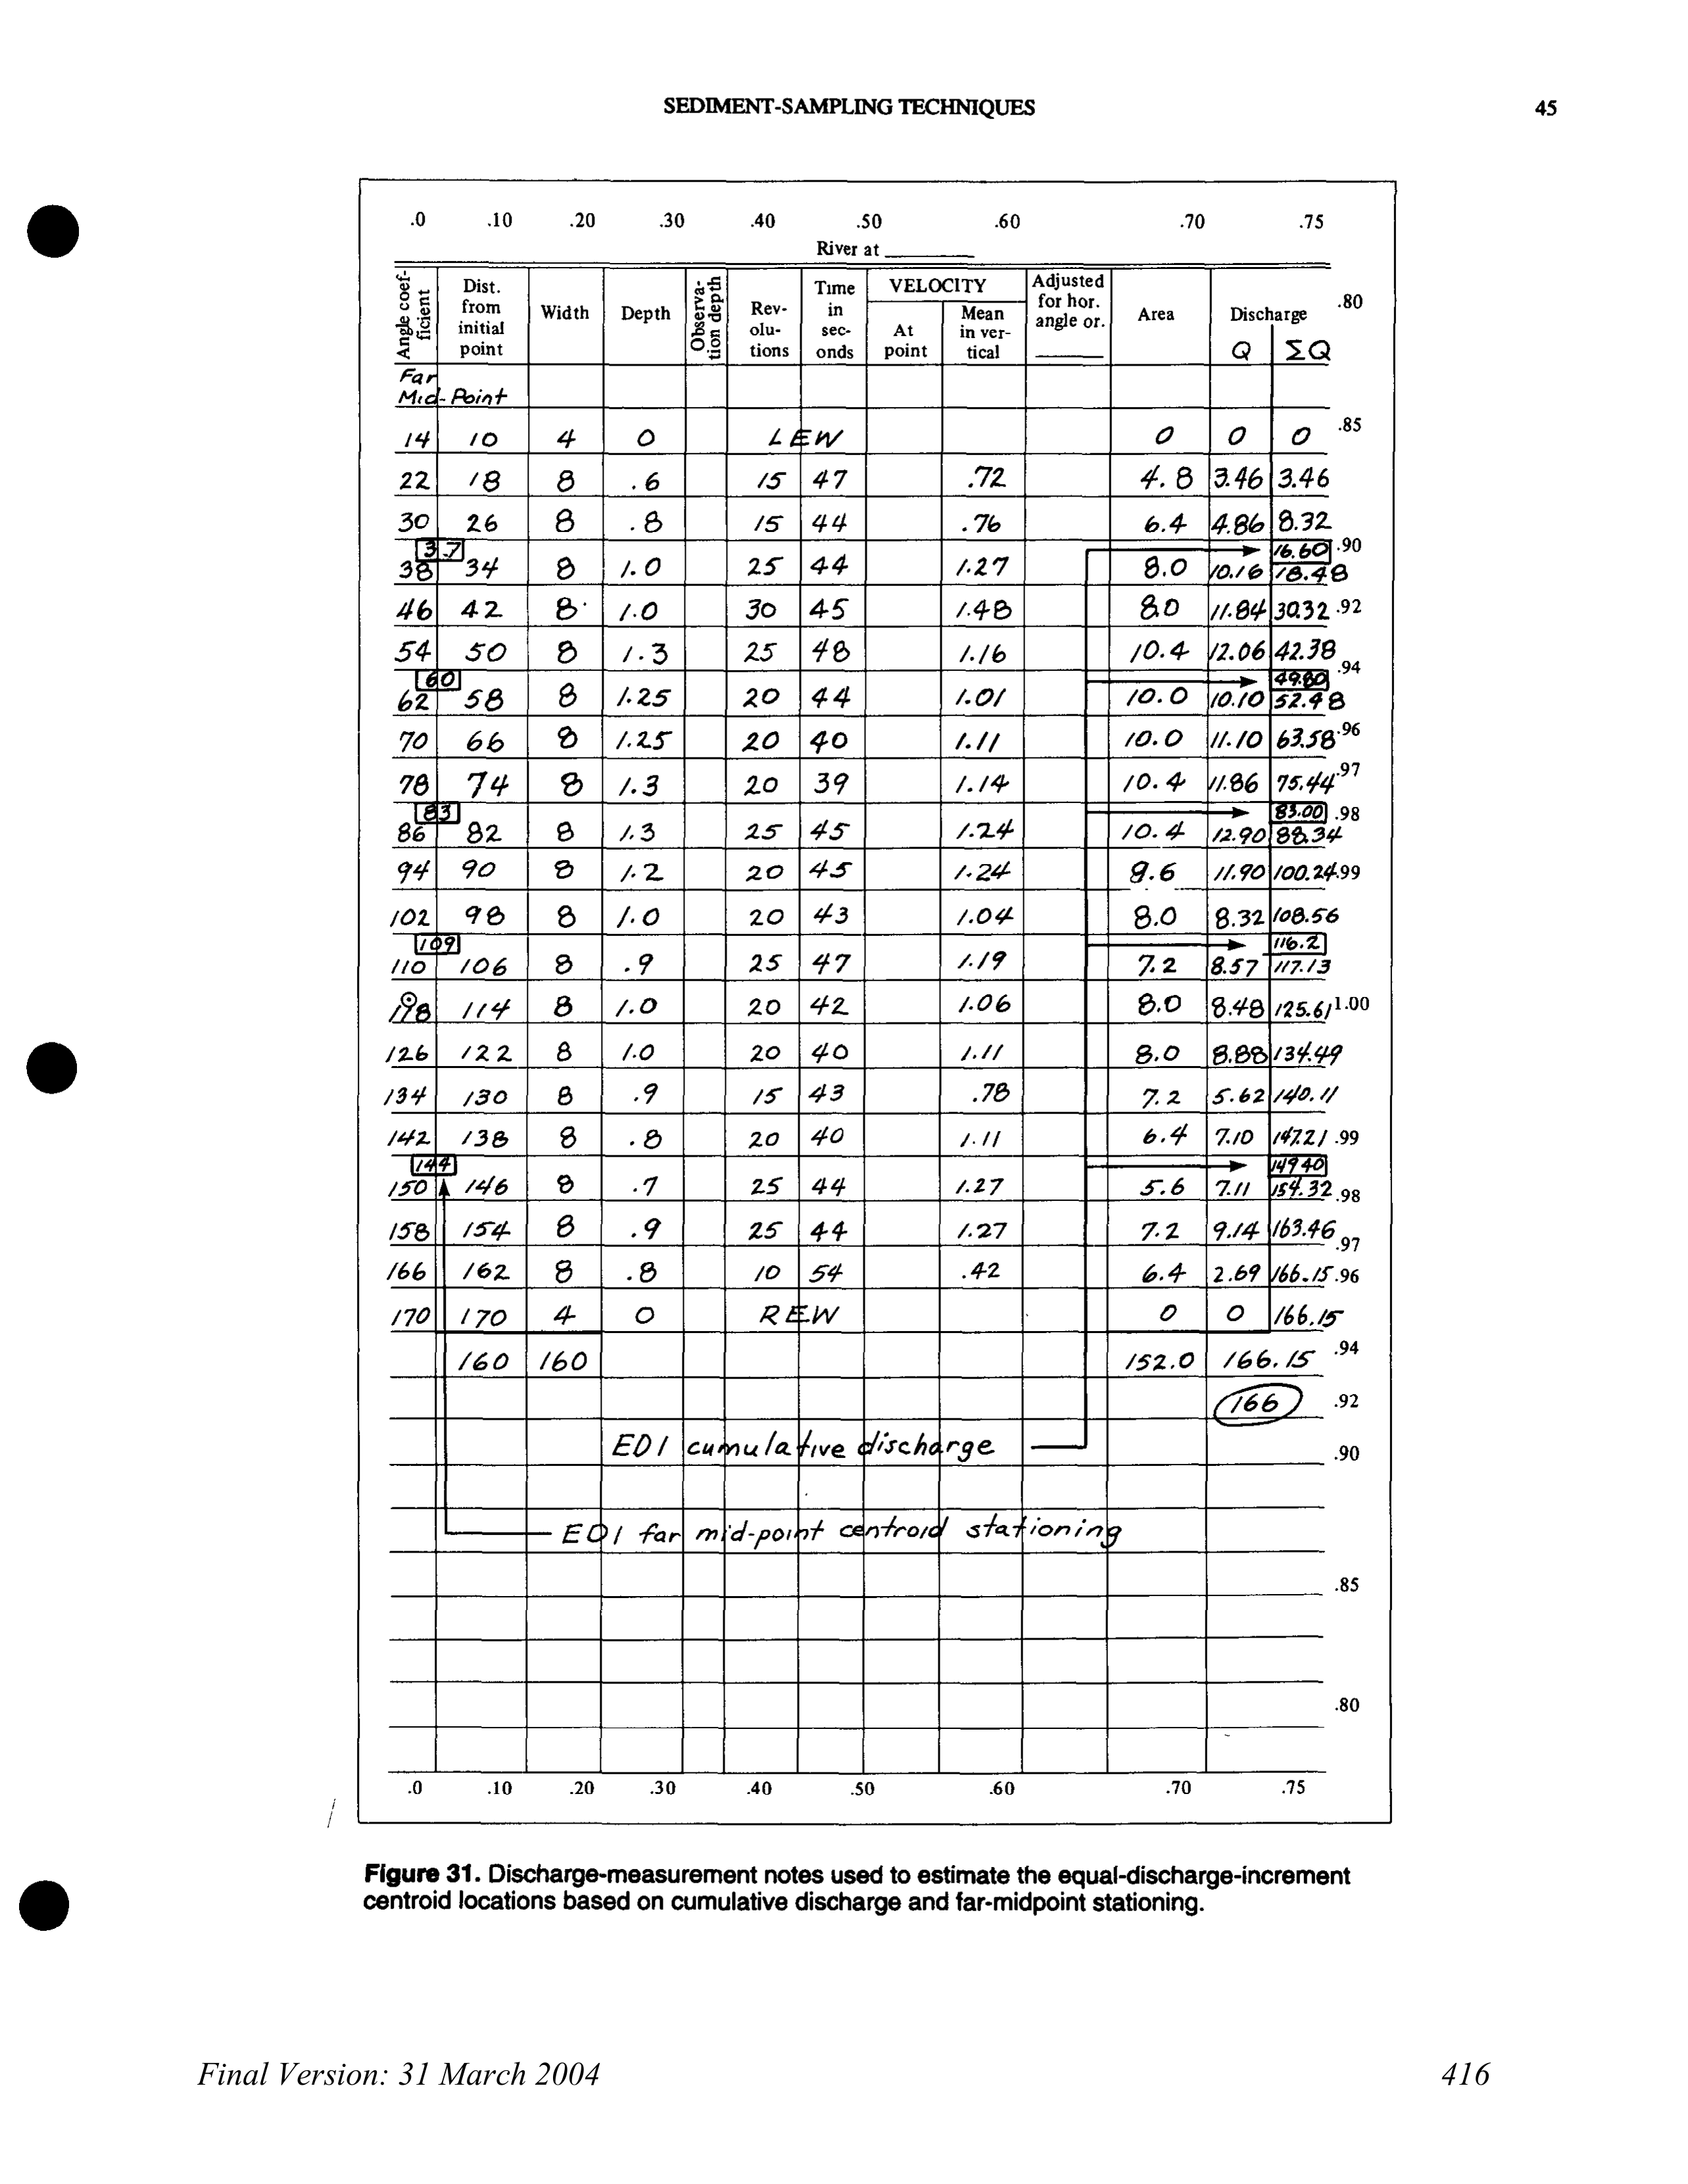 SEDIMENT-SAMPLING TECHNIQUES 45
.0 .10 .20 .30 .40 .50 .60 .70 .75
River at
Angle coef-ficient Dist. from initial point Width Depth Observa-tion depth Rev-olu-tions Time in sec-onds VELOCITY At point Mean in ver-tical Adjusted for hor. angle or. Area Discharge Q ΣQ .80
Far
Mid-Point
14 10 4 0 LEW 0 0 0 .85
22 18 8 .6 15 47 .72 4.8 3.46 3.46
30 26 8 .8 15 44 .76 6.4 4.86 8.32
37 16.60 .90
38 34 8 1.0 25 44 1.27 8.0 10.16 18.48
46 42 8 1.0 30 45 1.48 8.0 11.84 30.32 .92
54 50 8 1.3 25 48 1.16 10.4 12.06 42.38
.94
60 49.80
62 58 8 1.25 20 44 1.01 10.0 10.10 52.48
70 66 8 1.25 20 40 1.11 10.0 11.10 63.58 .96
78 74 8 1.3 20 39 1.14 10.4 11.86 75.44 .97
83 83.00 .98
86 82 8 1.3 25 45 1.24 10.4 12.90 88.34
94 90 8 1.2 20 45 1.24 9.6 11.90 100.24 .99
102 98 8 1.0 20 43 1.04 8.0 8.32 108.56
109 116.2
110 106 8 .9 25 47 1.19 7.2 8.57 117.13
118 114 8 1.0 20 42 1.06 8.0 8.48 125.61 1.00
126 122 8 1.0 20 40 1.11 8.0 8.88 134.49
134 130 8 .9 15 43 .78 7.2 5.62 140.11
142 138 8 .8 20 40 1.11 6.4 7.10 147.21 .99
144 149.40
150 146 8 .7 25 44 1.27 5.6 7.11 154.32 .98
158 154 8 .9 25 44 1.27 7.2 9.14 163.46
.97
166 162 8 .8 10 54 .42 6.4 2.69 166.15 .96
170 170 4 0 REW 0 0 166.15
160 160 152.0 166.15 .94
166 .92
EDI cumulative discharge .90
EDI far mid-point centroid stationing
.85
.80
.0 .10 .20 .30 .40 .50 .60 .70 .75
Figure 31. Discharge-measurement notes used to estimate the equal-discharge-increment
centroid locations based on cumulative discharge and far-midpoint stationing.
Final Version: 31 March 2004 416